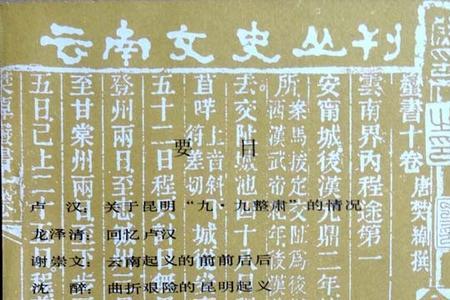 云南文史丛刊
要 目
卢 汉：关于昆明“九·九整肃”的情况
龙泽清：回忆卢汉
谢崇文：云南起义的前前后后
沈 醉：曲折艰险的昆明起义
蠻書十卷 唐樊綽撰
雲南界內程途第一
安甯城後漢元鼎二年
去交阯城池四十
五十二日程
登州兩日至
至甘棠州兩日
五日已上二